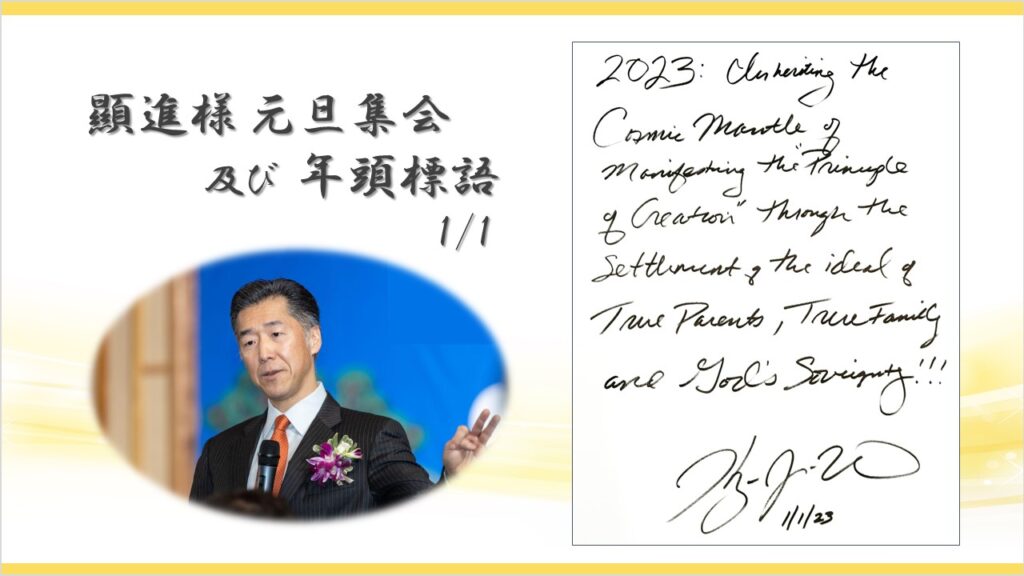 顯進様 元旦集会
及び 年頭標語
1/1
2023: Inheriting the
Cosmic Mantle of
Manifesting the "Principle
of Creation" through the
Settlement of the ideal of
True Parents, True Family
and God's Soverignty!!!
1/1/23